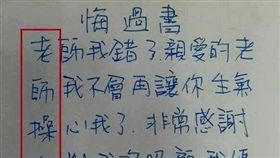 悔過書
老師我錯了親愛的老
師我不會再讓你生氣
操心我了.非常感謝